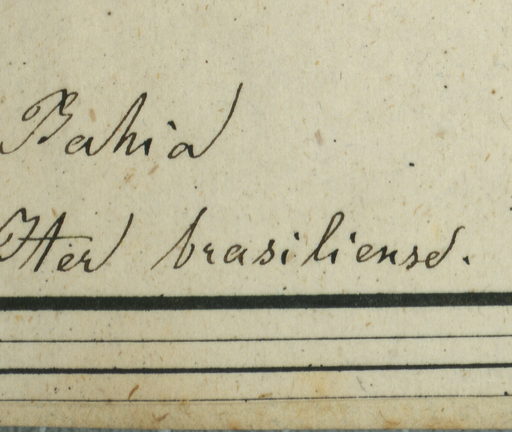 Bahia
Iter brasiliense.